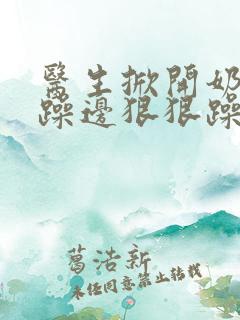 醫生掀開奶
躁邊狠狠躁
葛浩新
未经同意禁止转载